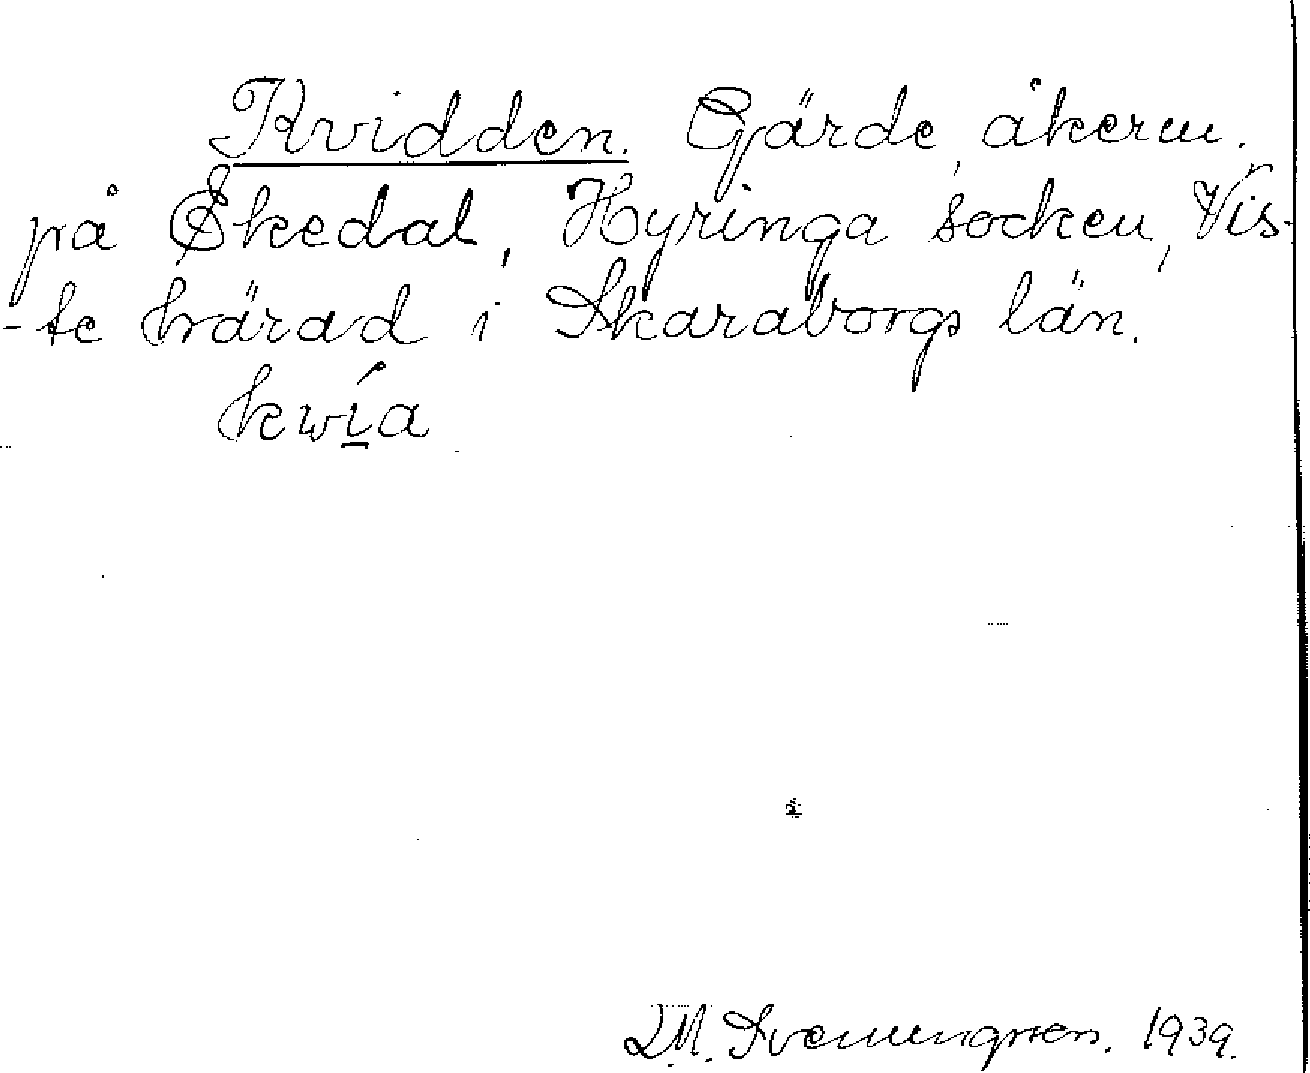 Kvidden. Gärde, åkerm.
på Ekedal, Hyringa socken, Vis-
-te härad i Skaraborgs län.
kwía
D.M. Svenungsson. 1939.